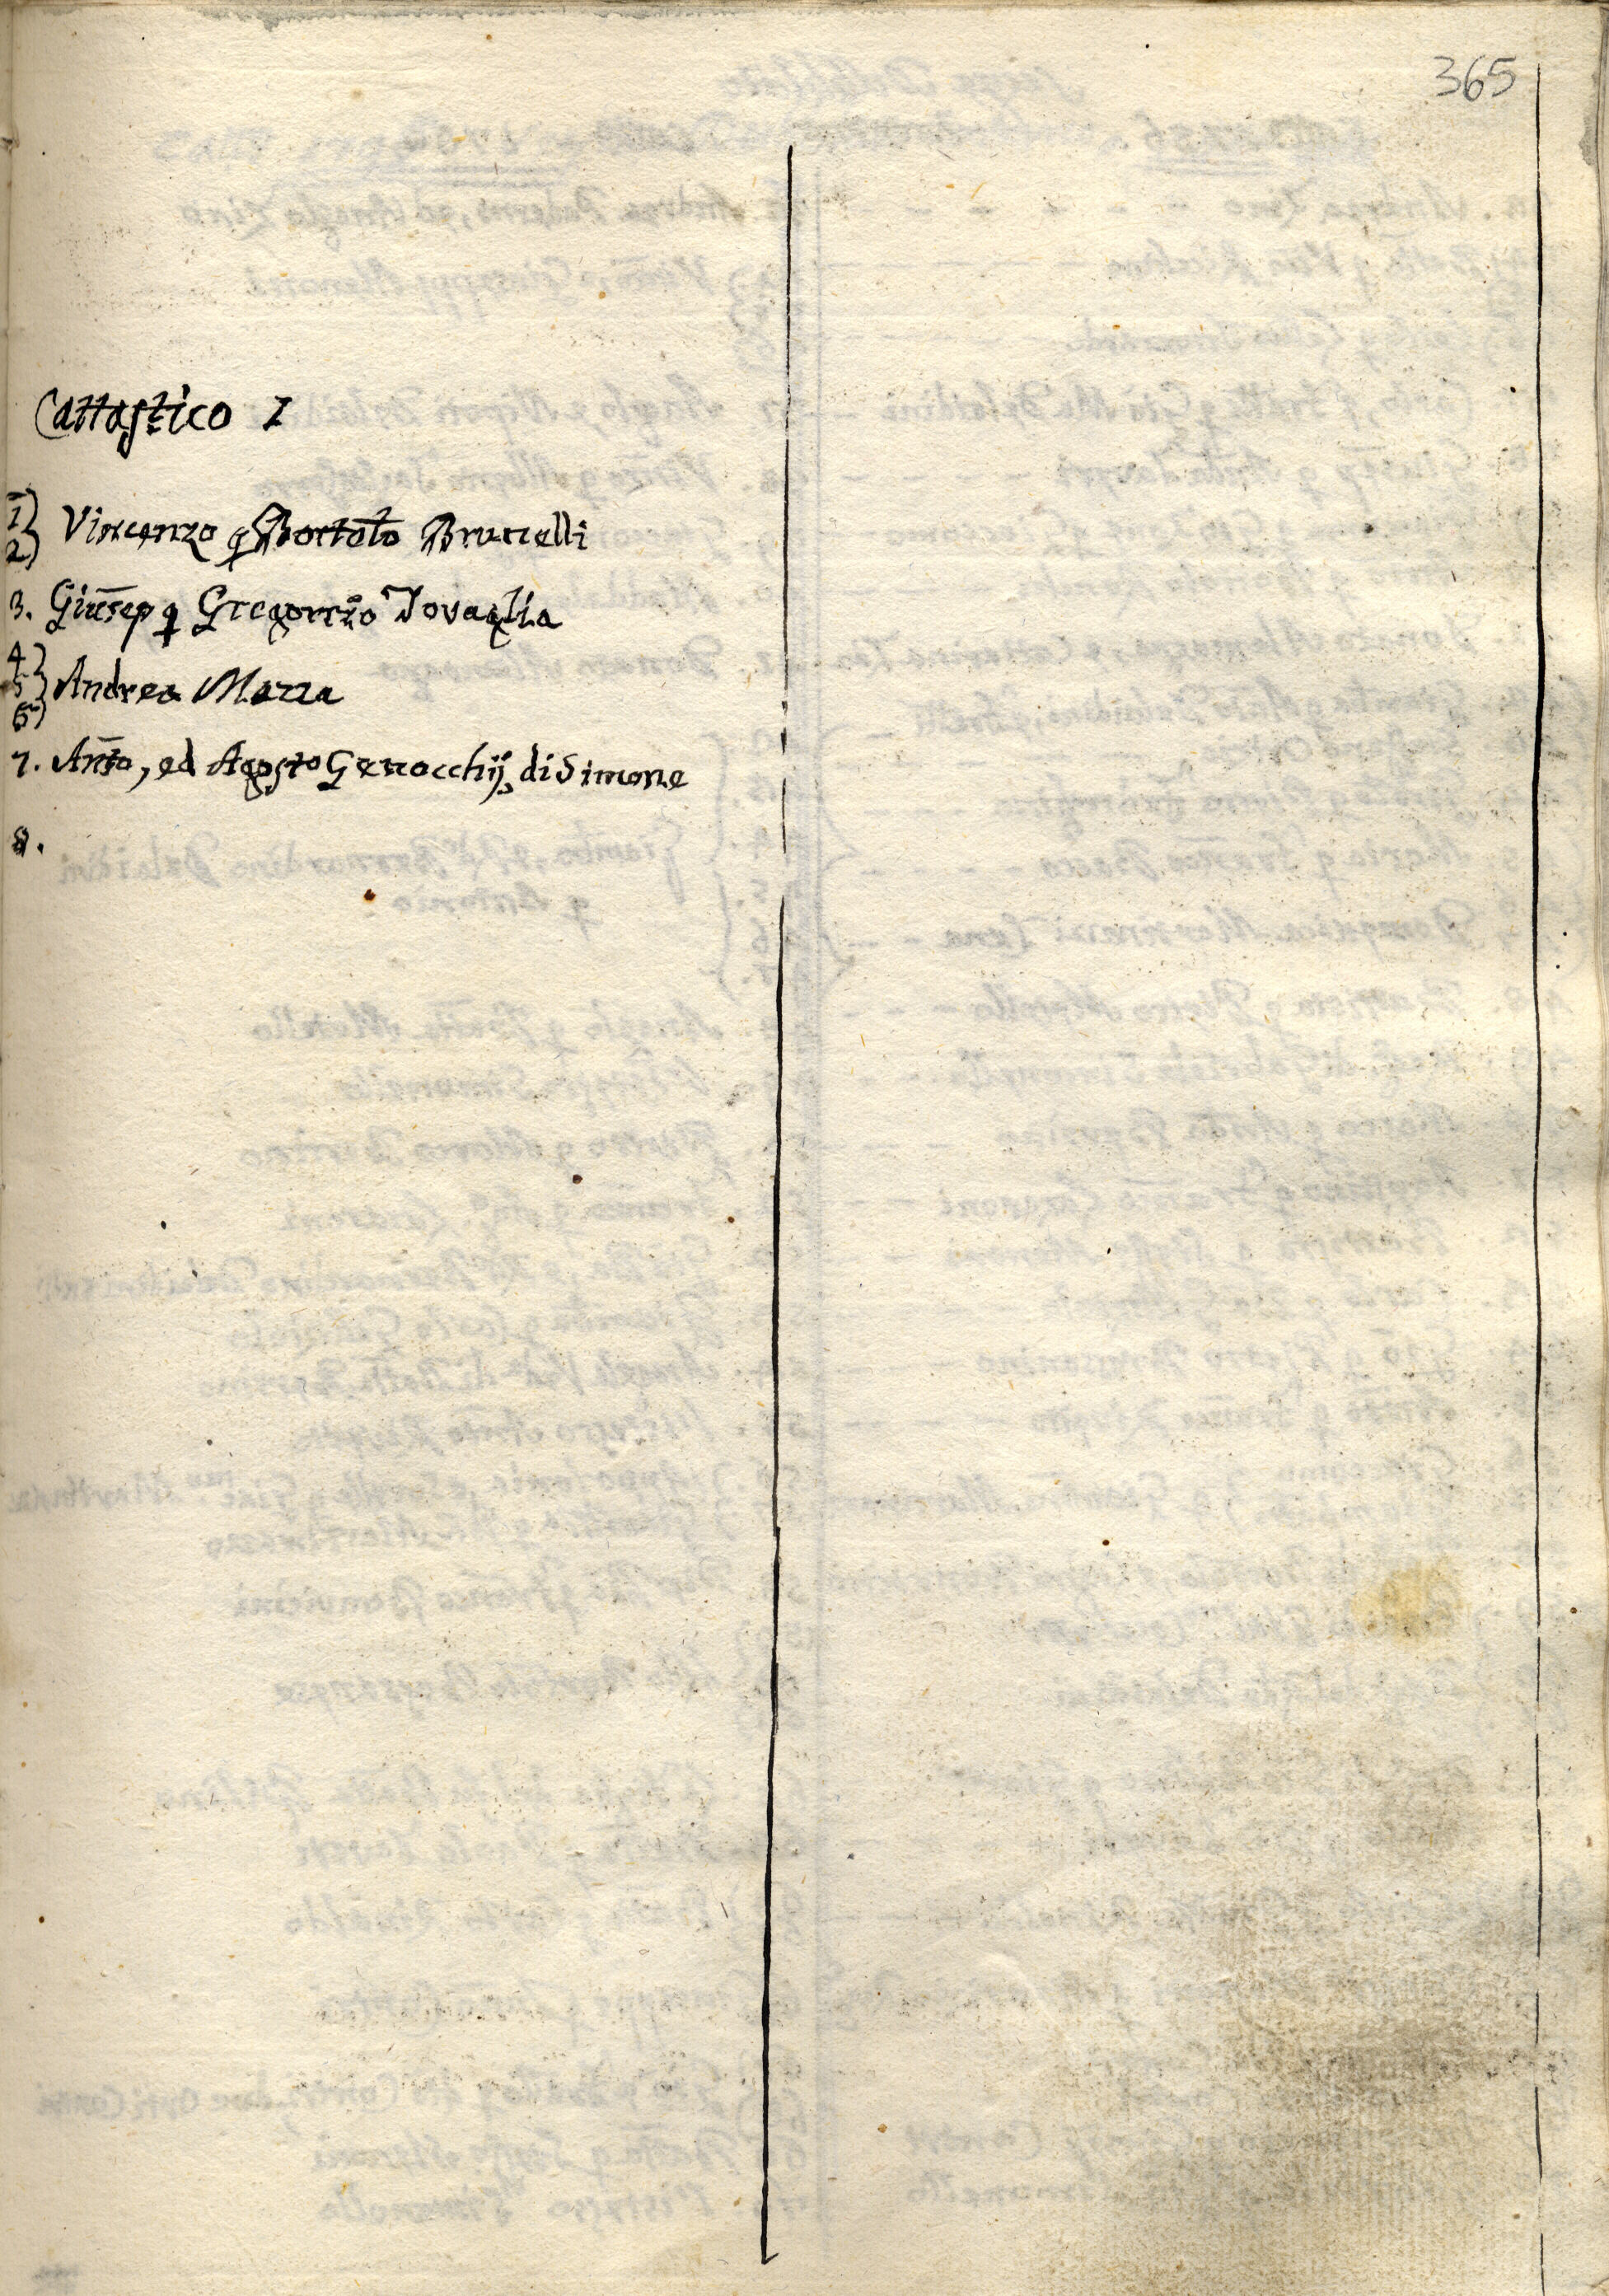 365
Cattastico I
1}
2} Vincenzo q Bortolo Brunelli
3. Giusep q Gregorrio Tovaglia
4}
5} Andrea Mazza
6}
7. Anto, ed Agosto Genocchij di Simone
8.